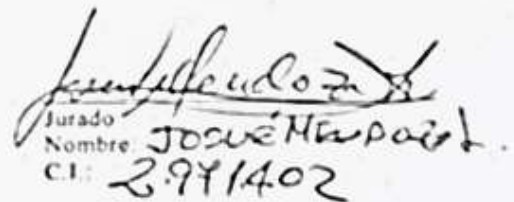 Jurado
Nombre: JOSUÉ MENDOZA L.
C.I.: 2.971402